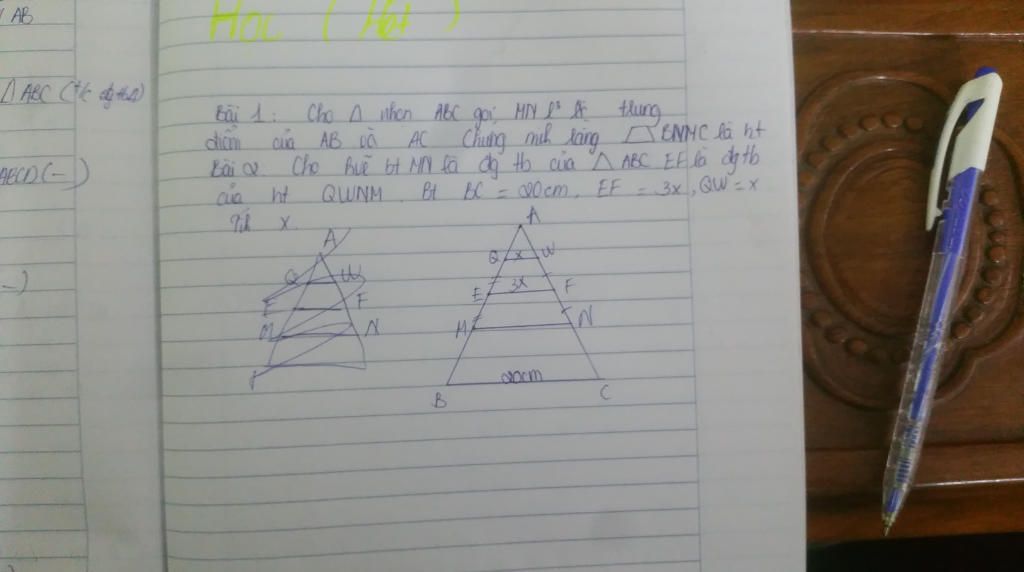 AB
Δ ABC (t/c đg tb Δ)
ABCD (–)
–)
Học ( Hot )
Bài 1 : Cho Δ nhọn ABC gọi MN l² là trung
điểm của AB và AC Chứng minh rằng BNMC là ht
Bài 2. Cho hvẽ bt MN là đg tb của Δ ABC EF là đg tb
của ht QWNM. Bt BC = 20cm, EF = 3x, QW = x
x.
A
Q W
E F
M N
A
Q x W
E 3x F
M N
20cm
B C